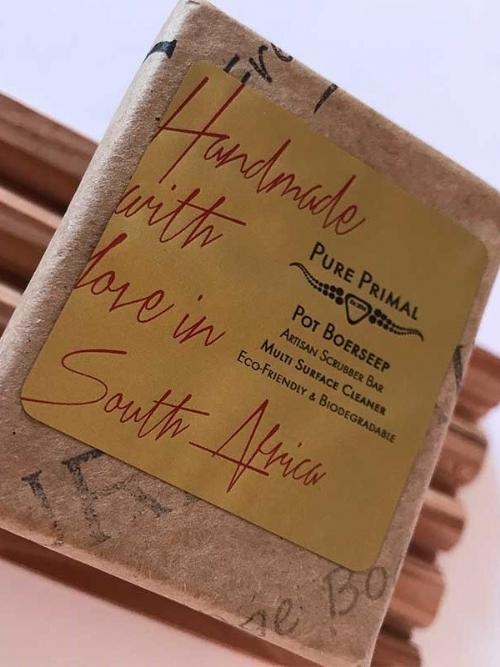 Handmade
with
love in
South Africa
PURE PRIMAL
POT BOERSEEP
ARTISAN SCRUBBER BAR
MULTI SURFACE CLEANER
ECO-FRIENDLY & BIODEGRADABLE
Bo